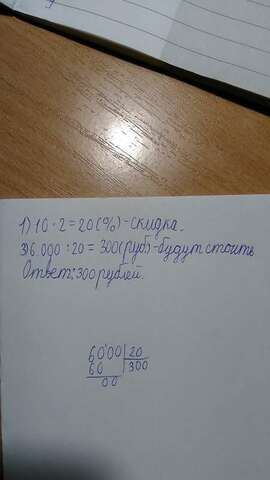 1) 10 · 2 = 20 (%) - скидка.
3)6.000 : 20 = 300 (руб) - будут стоить
Ответ: 300 рублей.
6000 | 20
60 | 300
00